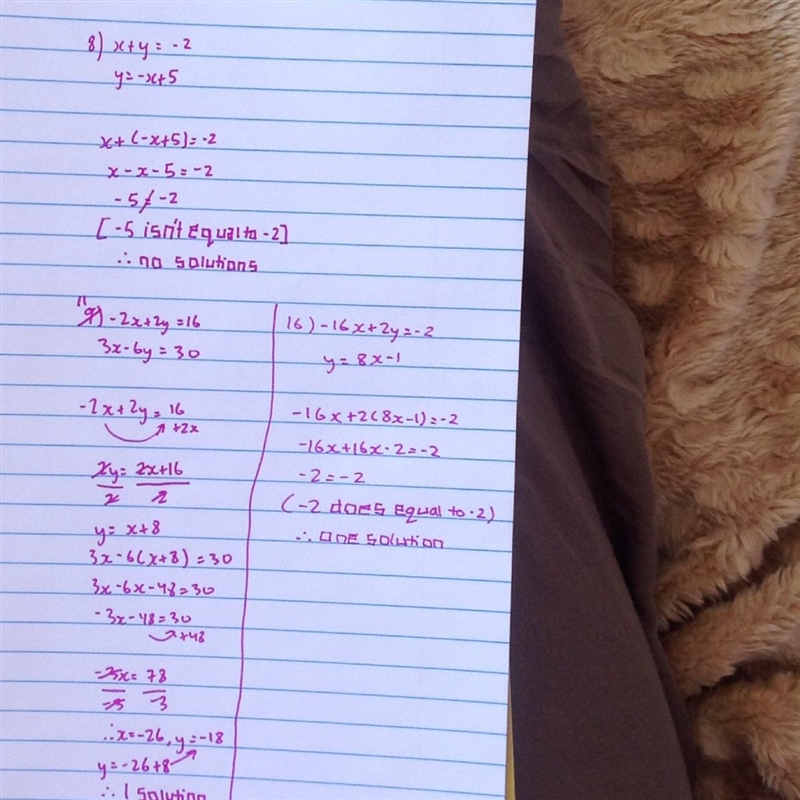 8) x+y = -2
y=-x+5
x+(-x+5)=-2
x-x-5=-2
-5≠-2
[-5 isn't equal to -2]
∴ no solutions
11) -2x+2y=16
3x-6y=30
-2x+2y=16
+2x
2y = 2x+16
2 2
y= x+8
3x-6(x+8)=30
3x-6x-48=30
-3x-48=30
+48
-3x= 78
-3 -3
∴x=-26, y=-18
y=-26+8
∴ 1 solution
16) -16x+2y=-2
y= 8x-1
-16x+2(8x-1)=-2
-16x+16x-2=-2
-2=-2
(-2 does equal to -2)
∴ one solution